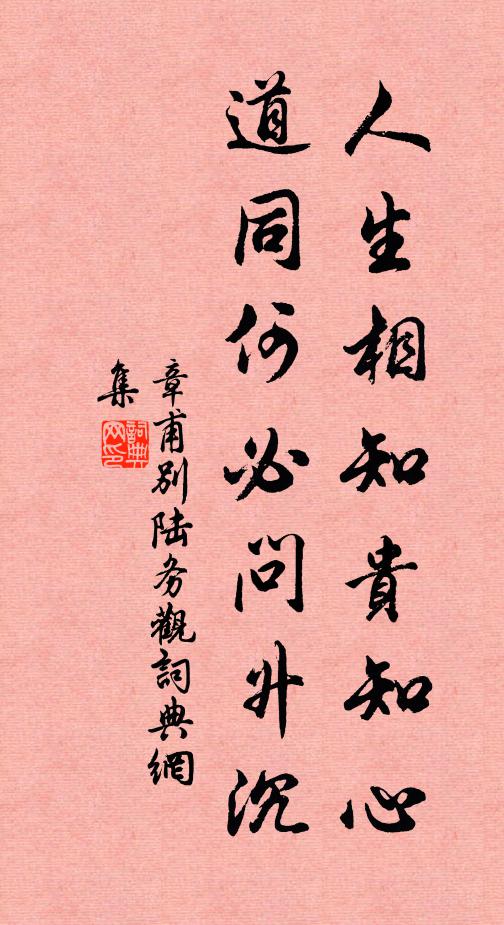 人生相知貴知心
道同何必問升沉
章甫別陸务觀詞典網
集
詞典
网印